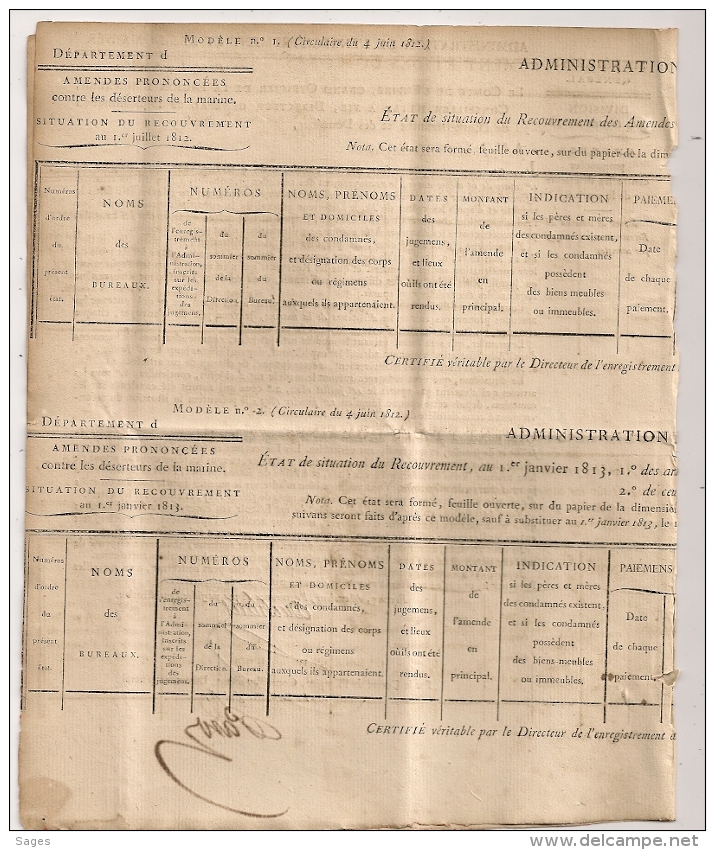 MODÈLE n.º 1. (Circulaire du 4 juin 1812.)
DÉPARTEMENT d
ADMINISTRATION
AMENDES PRONONCÉES
contre les déserteurs de la marine.
SITUATION DU RECOUVREMENT
au 1.er juillet 1812.
ÉTAT de situation du Recouvrement des Amendes
Nota. Cet état sera formé, feuille ouverte, sur du papier de la dim
Numéros
d'ordre
du
présent
état.
NOMS
des
BUREAUX.
NUMÉROS
de
l'enregis-
trement
à
l'Admi-
nistration,
inscrits
sur les
expédi-
tions
des
jugemens.
du
sommier
de la
Direction.
du
sommier
du
Bureau.
NOMS, PRÉNOMS
ET DOMICILES
des condamnés,
et désignation des corps
ou régimens
auxquels ils appartenaient.
DATES
des
jugemens,
et lieux
où ils ont été
rendus.
MONTANT
de
l'amende
en
principal.
INDICATION
si les pères et mères
des condamnés existent,
et si les condamnés
possèdent
des biens meubles
ou immeubles.
PAIEMEN
Date
de chaque
paiement.
CERTIFIÉ véritable par le Directeur de l'enregistrement
MODÈLE n.º 2. (Circulaire du 4 juin 1812.)
DÉPARTEMENT d
ADMINISTRATION
AMENDES PRONONCÉES
contre les déserteurs de la marine.
SITUATION DU RECOUVREMENT
au 1.er janvier 1813.
ÉTAT de situation du Recouvrement, au 1.er janvier 1813, 1.º des ar
2.º de ceu
Nota. Cet état sera formé, feuille ouverte, sur du papier de la dimension
suivans seront faits d'après ce modèle, sauf à substituer au 1.er janvier 1813, le
Numéros
d'ordre
du
présent
état.
NOMS
des
BUREAUX.
NUMÉROS
de
l'enregis-
trement
à
l'Admi-
nistration,
inscrits
sur les
expédi-
tions
des
jugemens.
du
sommier
de la
Direction.
du
sommier
du
Bureau.
NOMS, PRÉNOMS
ET DOMICILES
des condamnés,
et désignation des corps
ou régimens
auxquels ils appartenaient.
DATES
des
jugemens,
et lieux
où ils ont été
rendus.
MONTANT
de
l'amende
en
principal.
INDICATION
si les pères et mères
des condamnés existent,
et si les condamnés
possèdent
des biens-meubles
ou immeubles.
PAIEMENS
Date
de chaque
paiement.
CERTIFIÉ véritable par le Directeur de l'enregistrement d
Sages
delcampe.net